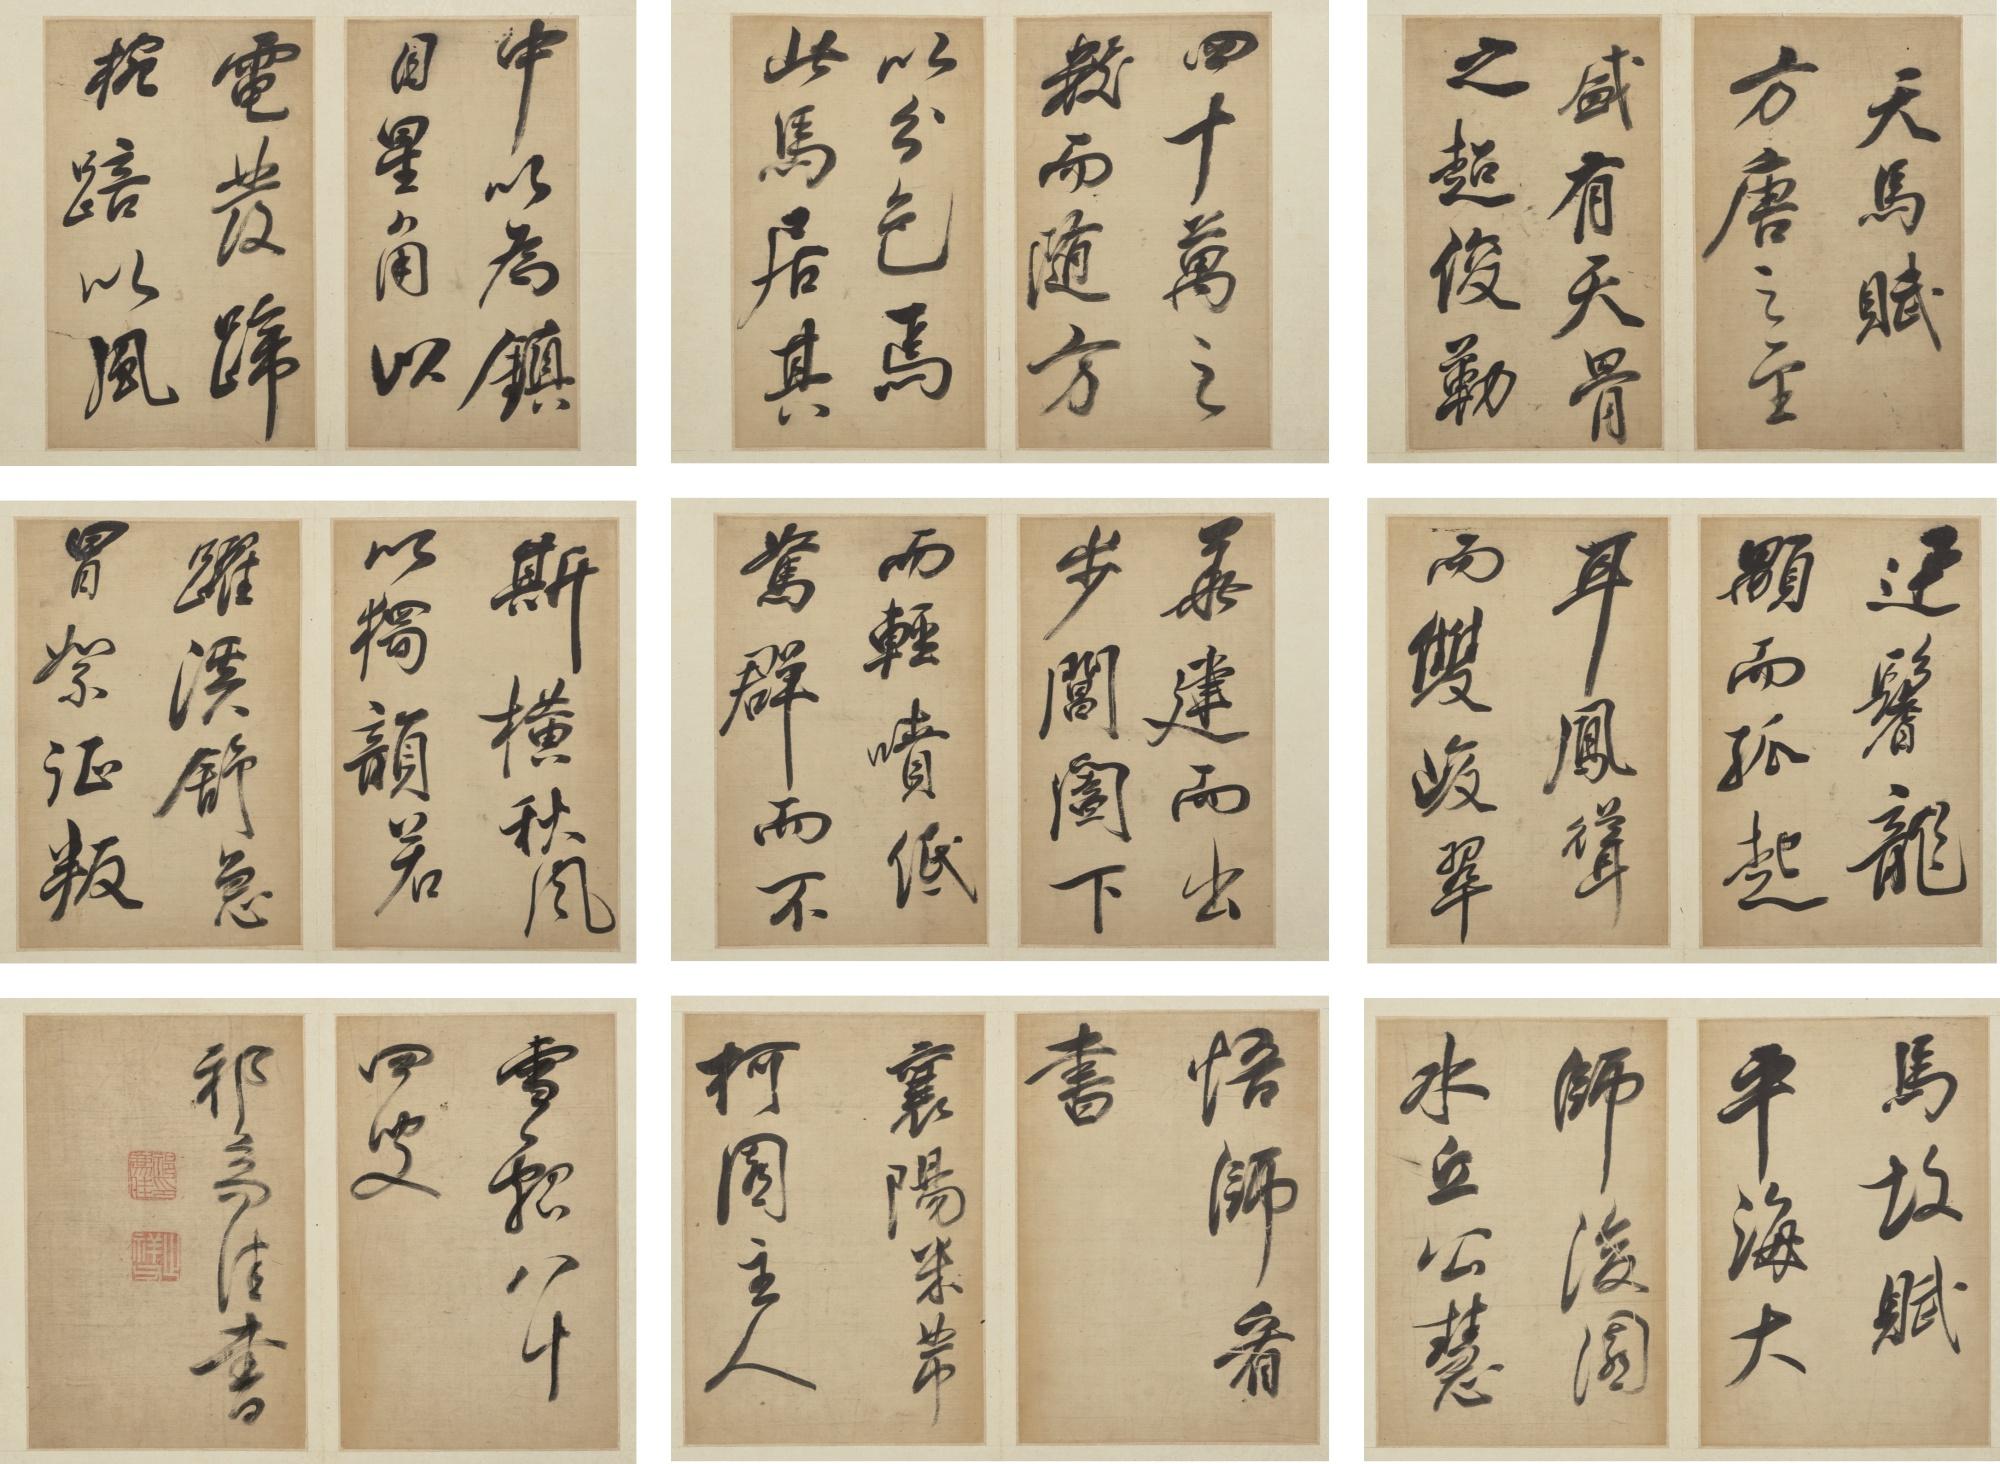 天馬賦
方唐之至
盛有天骨
之超俊勒
四十萬之
數而隨方
以分色焉
此馬居其
中以為鎮
目星角以
電發蹄
椀踣以風
迂鬐龍
顒而孤起
耳鳳聳
而雙峻翠
華建而出
步閶闔下
而輕噴低
駑群而不
斯橫秋風
以獨韻若
躍溪舒急
冒絮征叛
馬故賦
平海大
師後園
水丘公慧
悟師看
書
襄陽米芾
柯園主人
雪𩆜八十
四叟
祁豸佳書